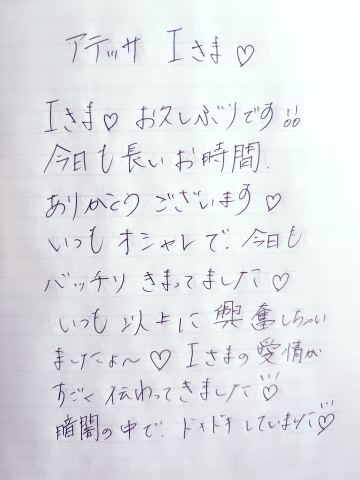 アテッサ Iさま♡
Iさま♡ お久しぶりです!!
今日も長いお時間.
ありがとうございます♡
いつもオシャレで.今日も
バッチリきまってました♡
いつも以上に興奮しちゃい
ましたよ〜♡ Iさまの愛情が
すごく伝わってきました♡
暗闇の中で.ドキドキしていました♡